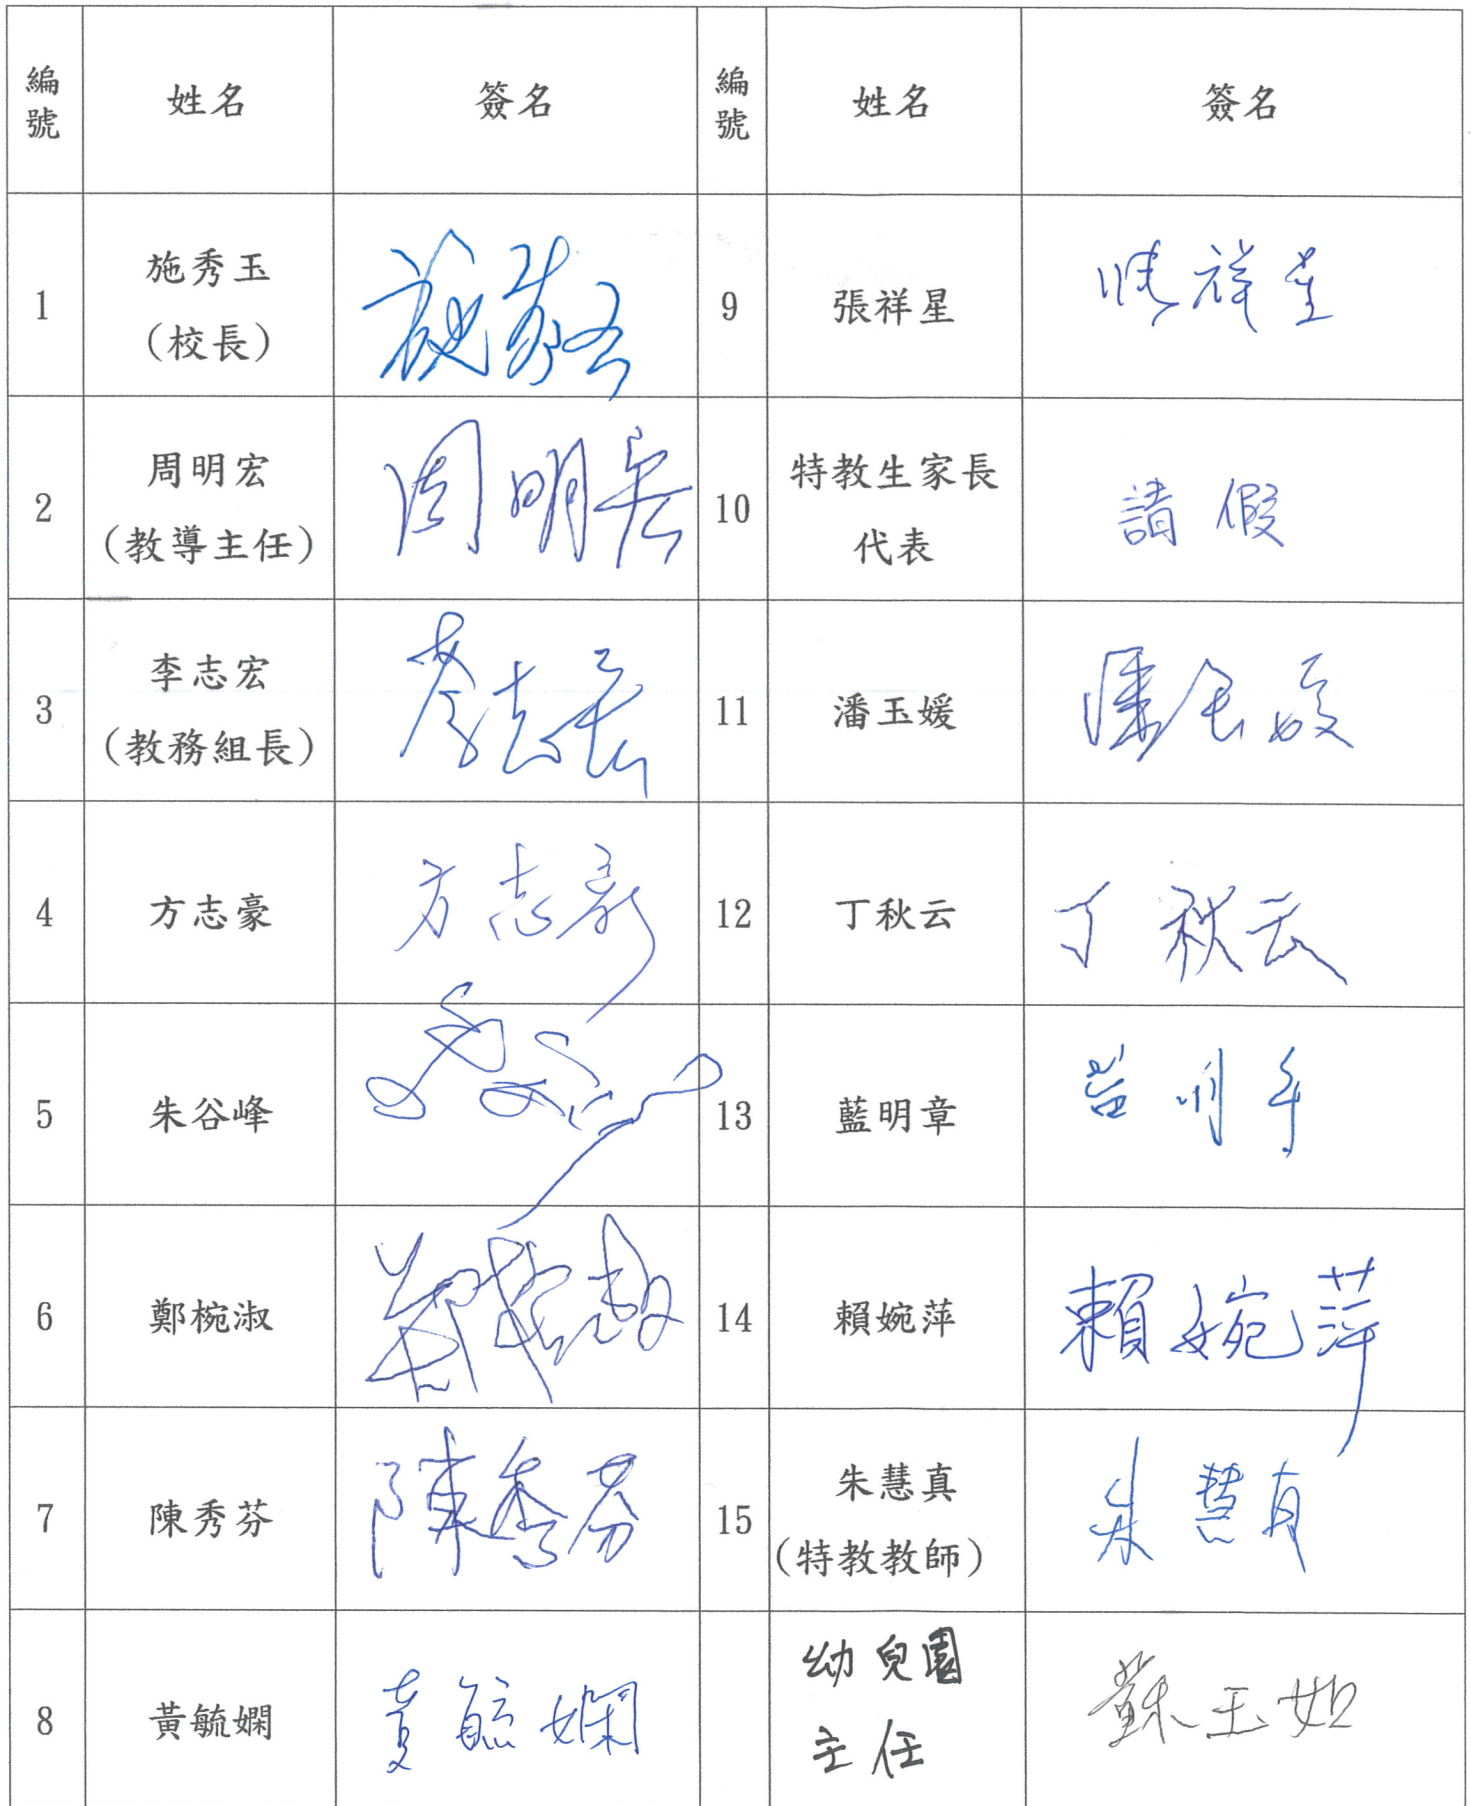 編號 姓名 簽名 編號 姓名 簽名
1 施秀玉 (校長) 施秀玉 9 張祥星 張祥星
2 周明宏 (教導主任) 周明宏 10 特教生家長代表 請假
3 李志宏 (教務組長) 李志宏 11 潘玉媛 潘玉媛
4 方志豪 方志豪 12 丁秋云 丁秋云
5 朱谷峰 13 藍明章
6 鄭椀淑 鄭椀淑 14 賴婉萍 賴婉萍
7 陳秀芬 陳秀芬 15 朱慧真 (特教教師) 朱慧真
8 黃毓嫻 黃毓嫻 幼兒園主任 蘇玉如